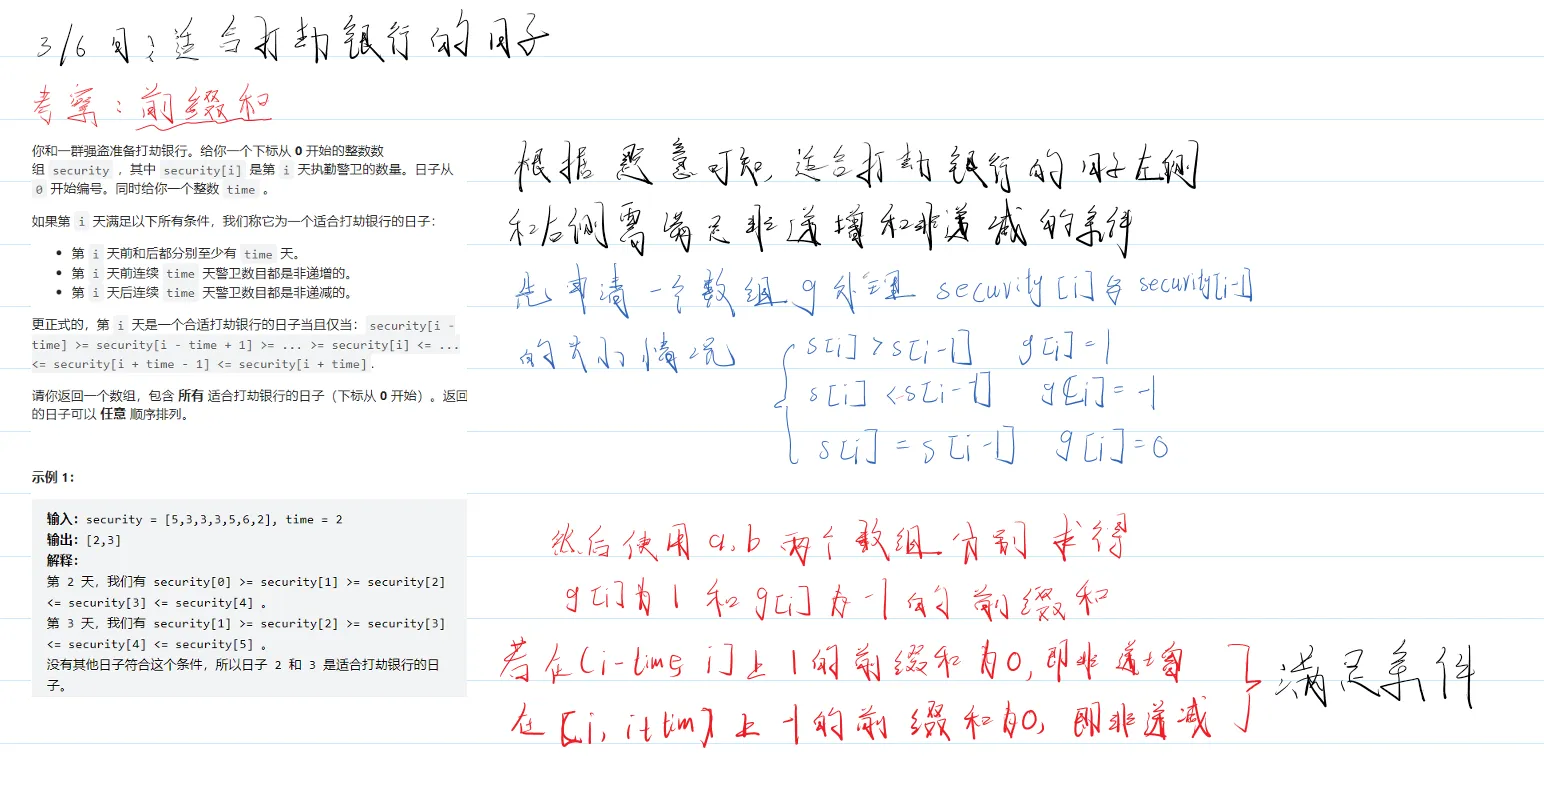 3/6日：适合打劫银行的日子
考察：前缀和
你和一群强盗准备打劫银行。给你一个下标从 0 开始的整数数
组 security ，其中 security[i] 是第 i 天执勤警卫的数量。日子从
0 开始编号。同时给你一个整数 time 。
如果第 i 天满足以下所有条件，我们称它为一个适合打劫银行的日子：
• 第 i 天前和后都分别至少有 time 天。
• 第 i 天前连续 time 天警卫数目都是非递增的。
• 第 i 天后连续 time 天警卫数目都是非递减的。
更正式的，第 i 天是一个合适打劫银行的日子当且仅当：security[i -
time] >= security[i - time + 1] >= ... >= security[i] <= ...
<= security[i + time - 1] <= security[i + time].
请你返回一个数组，包含 所有 适合打劫银行的日子（下标从 0 开始）。返回
的日子可以 任意 顺序排列。
示例 1：
输入：security = [5,3,3,3,5,6,2], time = 2
输出：[2,3]
解释：
第 2 天，我们有 security[0] >= security[1] >= security[2]
<= security[3] <= security[4] 。
第 3 天，我们有 security[1] >= security[2] >= security[3]
<= security[4] <= security[5] 。
没有其他日子符合这个条件，所以日子 2 和 3 是适合打劫银行的日
子。
根据题意可知，适合打劫银行的日子左侧
和右侧需满足非递增和非递减的条件
先申请一个数组 g 处理 security[i]与security[i-1]
的大小情况
s[i] > s[i-1] g[i]=1
s[i] < s[i-1] g[i]=-1
s[i] = s[i-1] g[i]=0
然后使用a,b两个数组分别求得
g[i]为1和g[i]为-1的前缀和
若在(i-time, i]上1的前缀和为0,即非递增
在[i, i+tim]上-1的前缀和为0,即非递减
满足条件